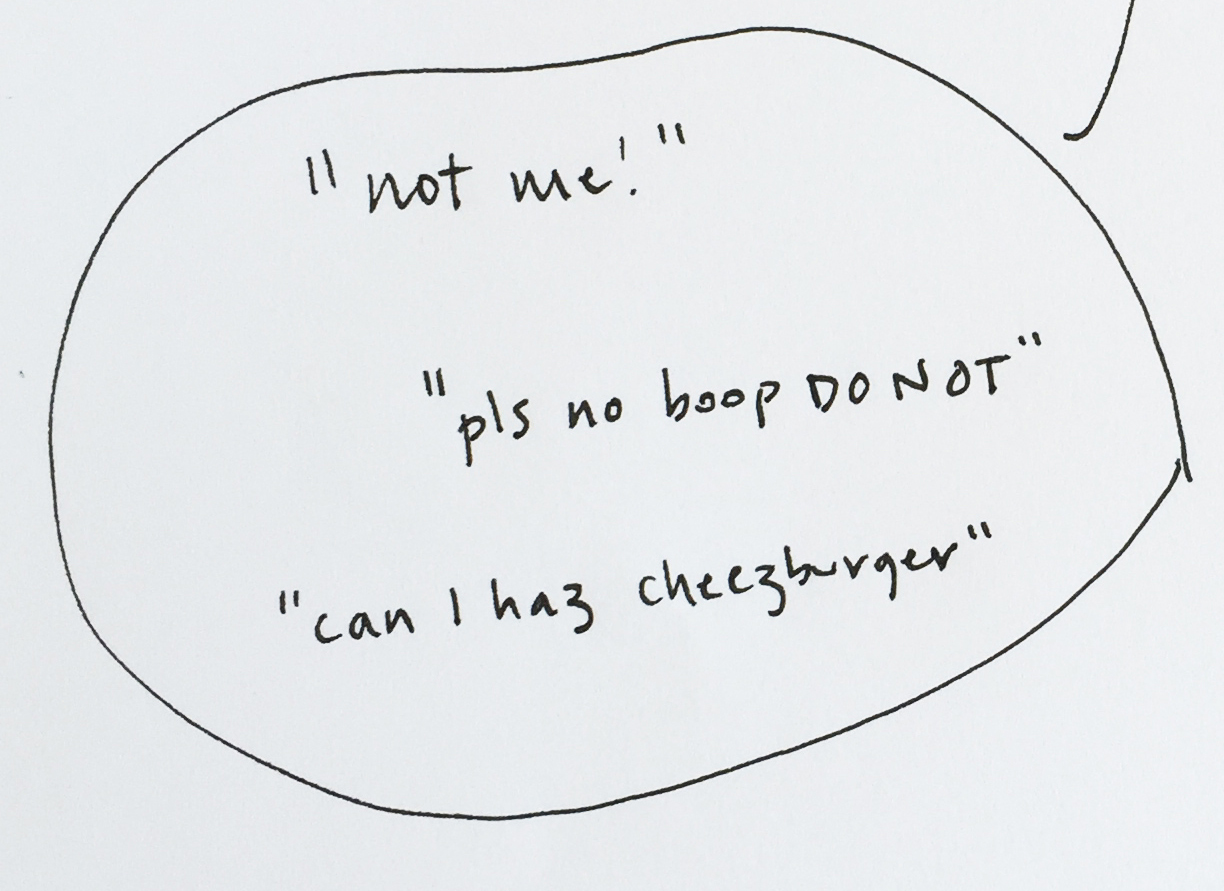 "not me!"
"pls no boop DO NOT"
"can I haz cheezburger"